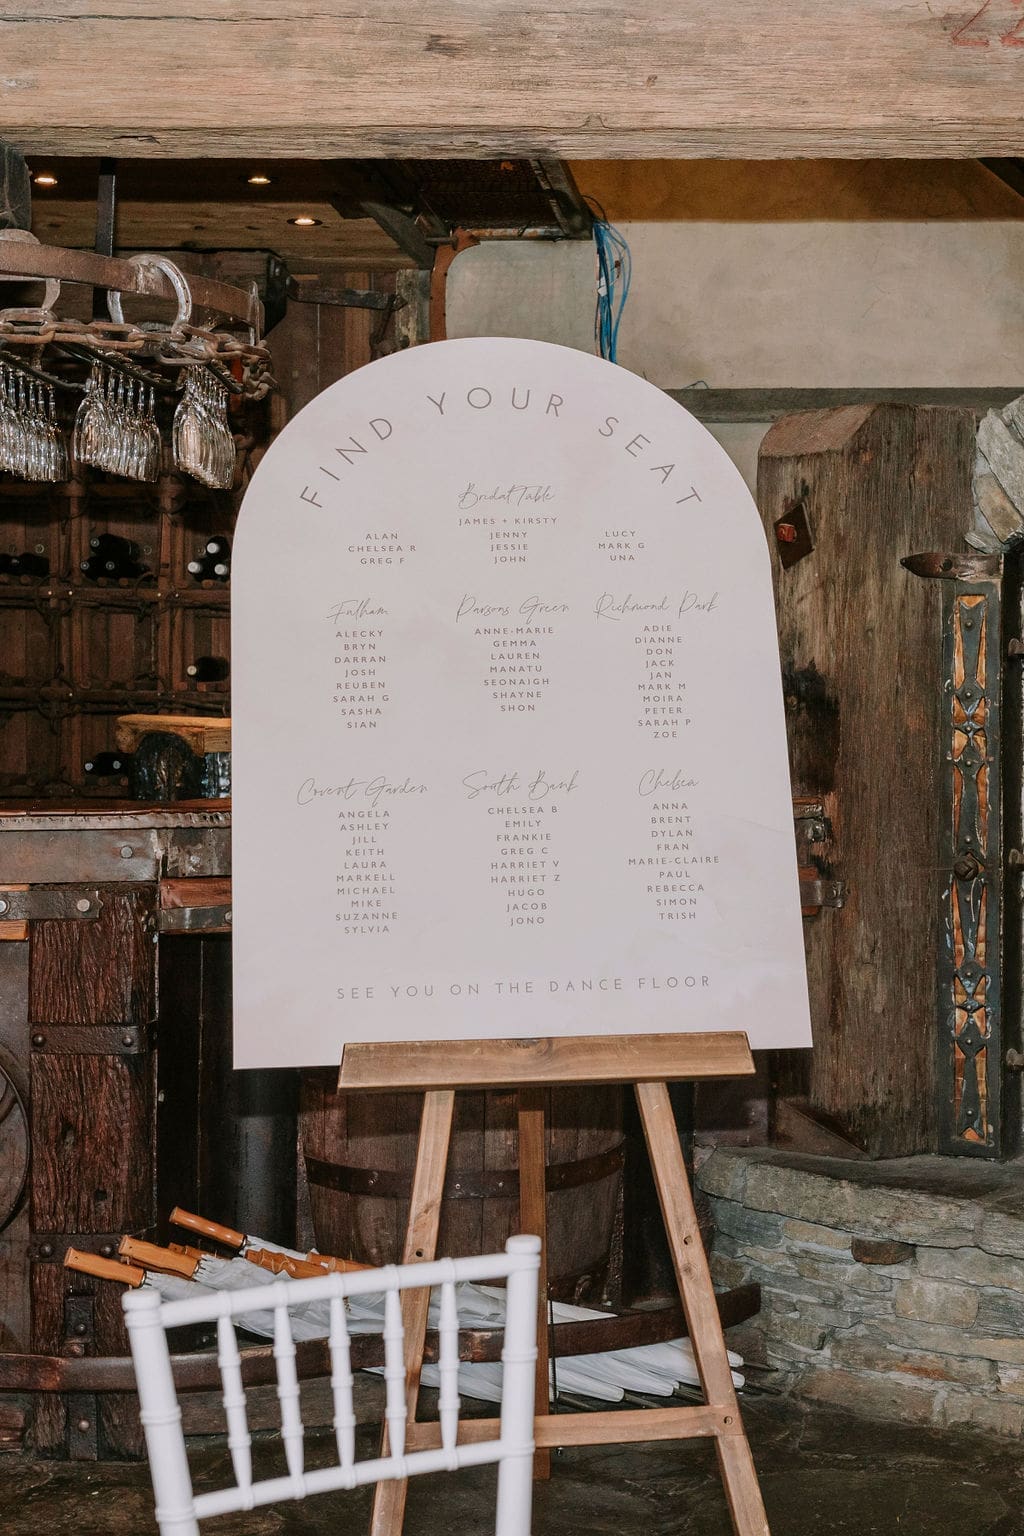 FIND YOUR SEAT
Bridal Table
ALAN
CHELSEA R
GREG F
JAMES + KIRSTY
JENNY
JESSIE
JOHN
LUCY
MARK G
UNA
Fulham
ALECKY
BRYN
DARRAN
JOSH
REUBEN
SARAH G
SASHA
SIAN
Parsons Green
ANNE-MARIE
GEMMA
LAUREN
MANATU
SEONAIGH
SHAYNE
SHON
Richmond Park
ADIE
DIANNE
DON
JACK
JAN
MARK M
MOIRA
PETER
SARAH P
ZOE
Covent Garden
ANGELA
ASHLEY
JILL
KEITH
LAURA
MARKELL
MICHAEL
MIKE
SUZANNE
SYLVIA
South Bank
CHELSEA B
EMILY
FRANKIE
GREG C
HARRIET V
HARRIET Z
HUGO
JACOB
JONO
Chelsea
ANNA
BRENT
DYLAN
FRAN
MARIE-CLAIRE
PAUL
REBECCA
SIMON
TRISH
SEE YOU ON THE DANCE FLOOR